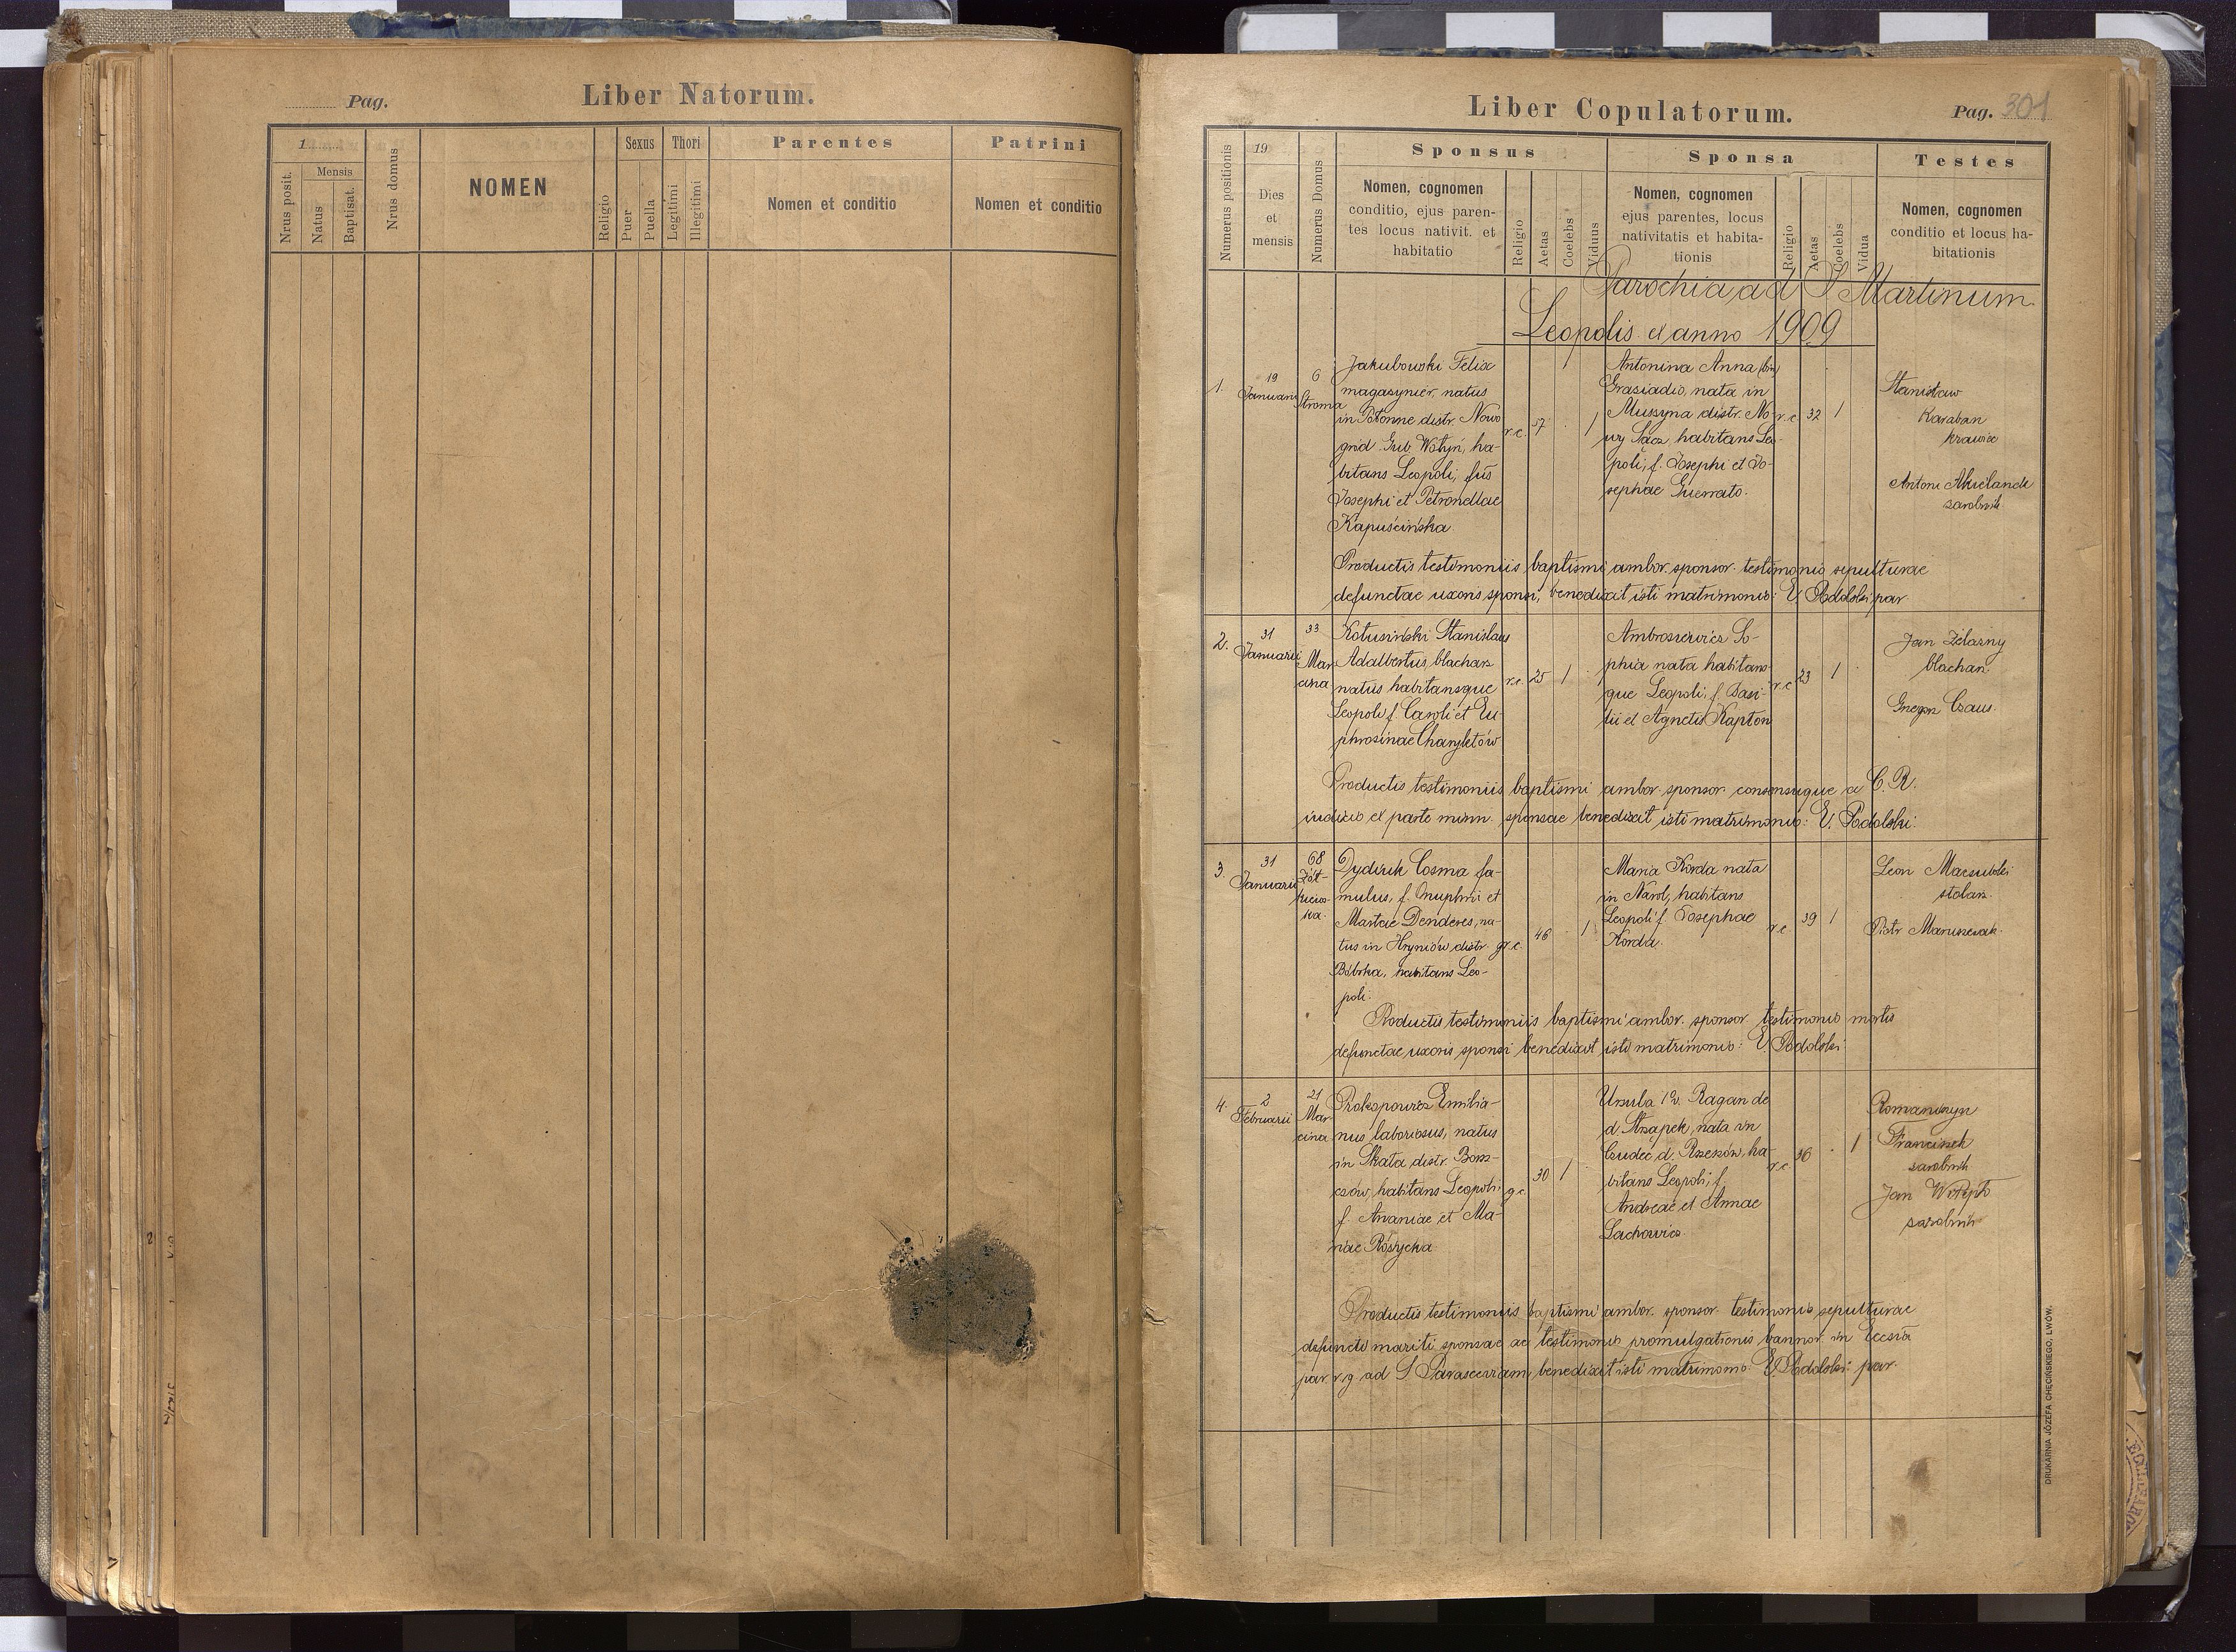 Pag.
Liber Natorum.
1
Nrus posit.
Mensis
Natus
Baptisat.
Nrus domus
NOMEN
Religio
Sexus
Puer
Puella
Thori
Legitimi
Illegitimi
Parentes
Nomen et conditio
Patrini
Nomen et conditio
Liber Copulatorum.
Pag. 301
Numerus positionis
19
Dies
et
mensis
Numerus Domus
Sponsus
Nomen, cognomen
conditio, ejus paren-
tes locus nativit. et
habitatio
Religio
Aetas
Coelebs
Viduus
Sponsa
Nomen, cognomen
ejus parentes, locus
nativitatis et habita-
tionis
Religio
Aetas
Coelebs
Vidua
Testes
Nomen, cognomen
conditio et locus ha-
bitationis
Parochia ad S Martinum
Leopolis et anno 1909
1.
19
Januarii
6
Stroma
Jakubowski Felix
magazynier, natus
in Połonne distr. Nowo
grid Gub Wołyń, ha-
bitans Leopoli, fus
Josephi et Petronellae
Kapuścińska
r.c.
57
1
Antonina Anna (bin)
Grasiadio, nata in
Muszyna distr. No-
wy Sącz, habitans Leo-
poli, f. Josephi et Jo-
sephae Guerrato.
r.c
32
1
Stanisław
Karaban
krawiec
Antoni
zarobnik
Productis testimoniis baptismi ambor. sponsor. testimonio sepulturae
defunctae uxoris sponsi, benedixit isti matrimonio: E. Podolski par.
2.
31
Januarii
33
Mar
cina
Kotusiński Stanislaus
Adalbertus, blacharz
natus habitansque
Leopoli f. Caroli et Eu-
phrosinae Charyletów
r.c.
25
1
Ambroziewicz So-
phia nata habitans-
que Leopoli, f. Basi-
lii et Agnetis Kapton
r.c
23
1
Jan Żelazny
blacharz.
Grzegorz Czaus.
Productis testimoniis baptismi ambor. sponsor. consensuque a C. R.
iudicio ex parte minn. sponsae benedixit isti matrimonio: E. Podolski.
3.
31
Januarii
68
Żół-
kiews-
ka.
Dydiuk Cosma fa-
mulus, f. Onuphrii et
Martae Denderes, na-
tus in Hryniów distr.
Bóbrka, habitans Leo-
poli.
gr.c.
46
1
Maria Korda nata
in Narol, habitans
Leopoli f. Josephae
Korda.
r.c.
39
1
Leon
stolarz.
Piotr Maruszczak.
Productis testimoniis baptismi ambor. sponsor. testimonio mortis
defunctae uxoris sponsi benedixit isti matrimonio: E. Podolski
4.
2
Februarii
21
Mar
cina
Prokopowicz Emilia-
nus laboriosus, natus
in Skała distr. Borsz-
czów, habitans Leopoli,
f. Ananiae et Ma-
riae Róstycka
g.c.
30
1
Ursula 1 v. Ragan de
d Strzapek, nata in
Czudec d. Rzeszów, ha-
bitans Leopoli, f.
Andreae et Annae
Lachowicz
r.c.
36
1
Romanczyn
Franciszek
zarobnik
Jan
zarobnik
Productis testimoniis baptismi ambor. sponsor. testimonio sepulturae
defuncti mariti sponsae ac testimonio promulgationis bannor. in Eccsia
par. r.g ad S. Parasceviam, benedixit isti matrimonio: E. Podolski par.
DRUKARNIA JÓZEFA CHĘCIŃSKIEGO, LWÓW.